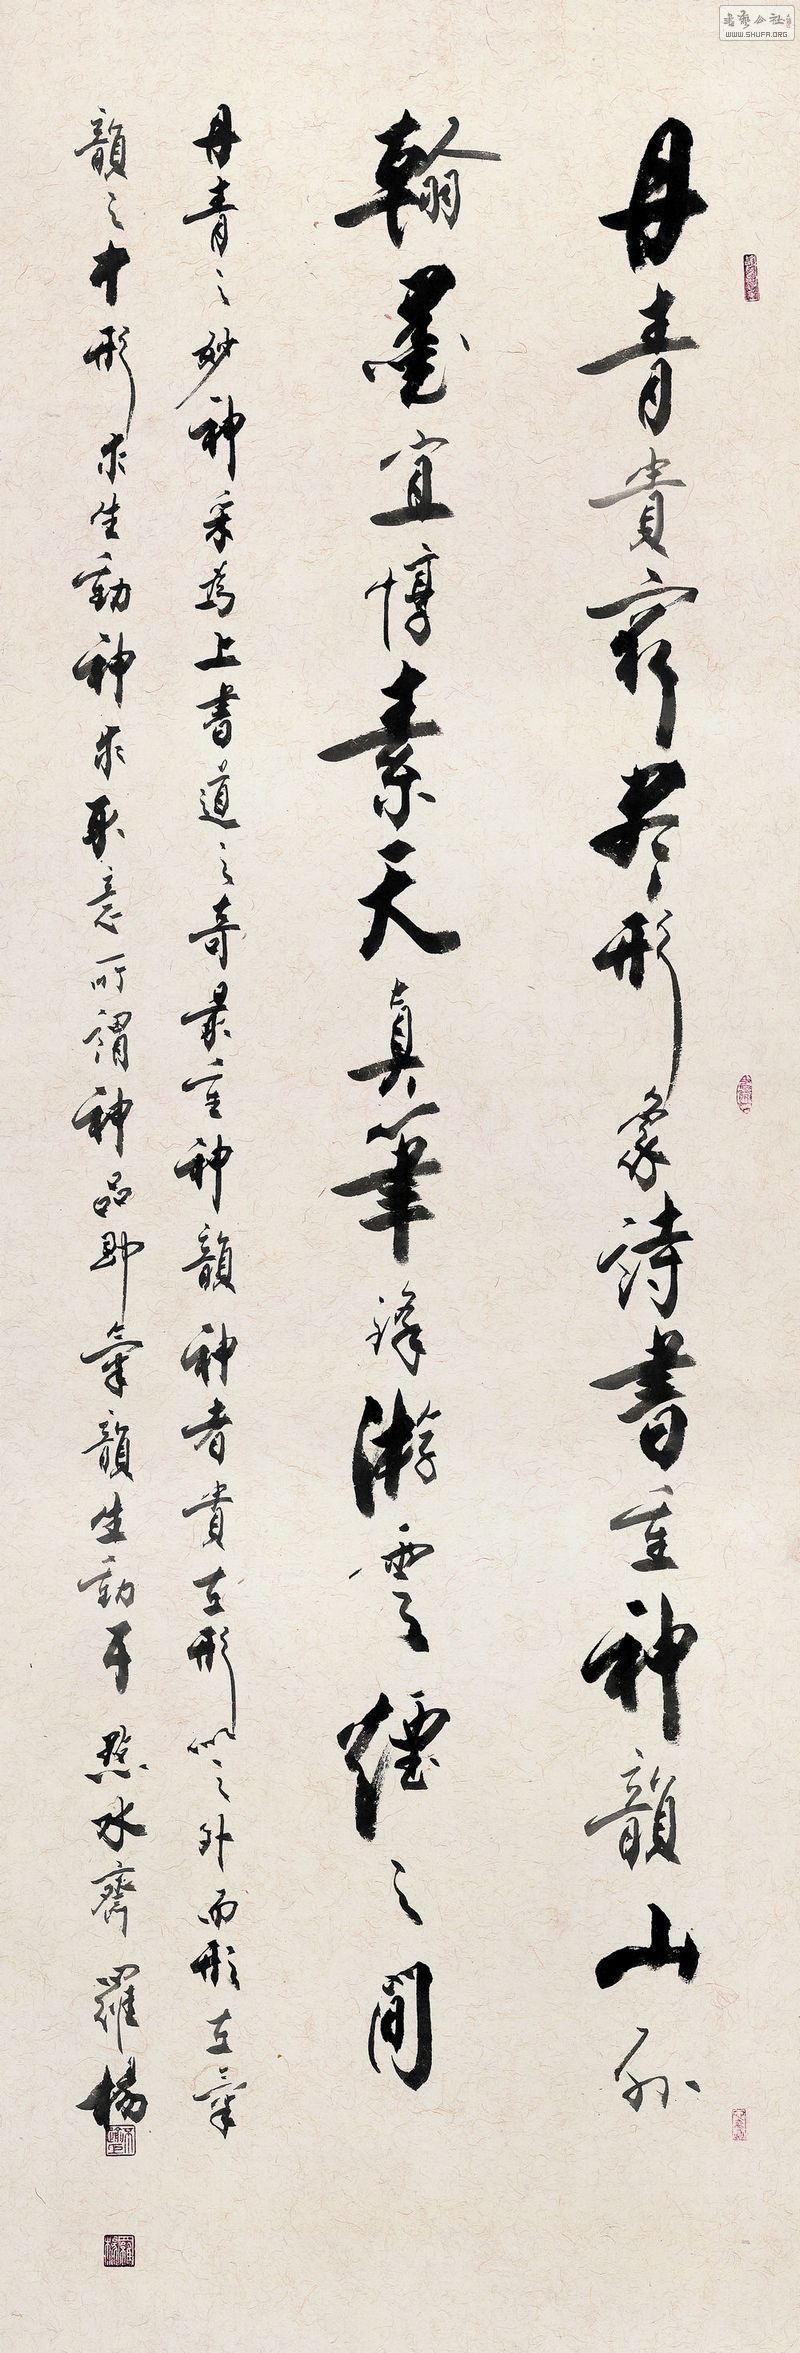 丹青貴窮盡形象詩書重神韻山外
翰墨宜惇素天真筆鋒游雲煙之間
丹青之妙神采爲上書道之奇最重神韻神者貴在形似之外而形在氣
韻之中形求生動神求取意所謂神品即氣韻生動耳 點水齋 羅楊
書藝公社
WWW.SHUFA.ORG